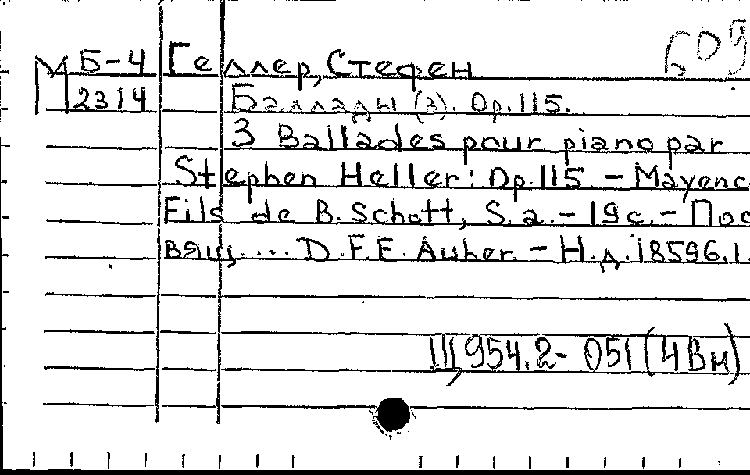 М Б-4 Геллер, Стефен 609
2314 Баллады (3). Op.115.
3 Ballades pour piano par
Stephen Heller: Op.115. – Mayenc
Fils de B. Schott, S. a. – 19 с. – Пос
вящ.... D. F. E. Auber. – Н.д. 18596.1.
III, 954.2- 051 (4Вн)